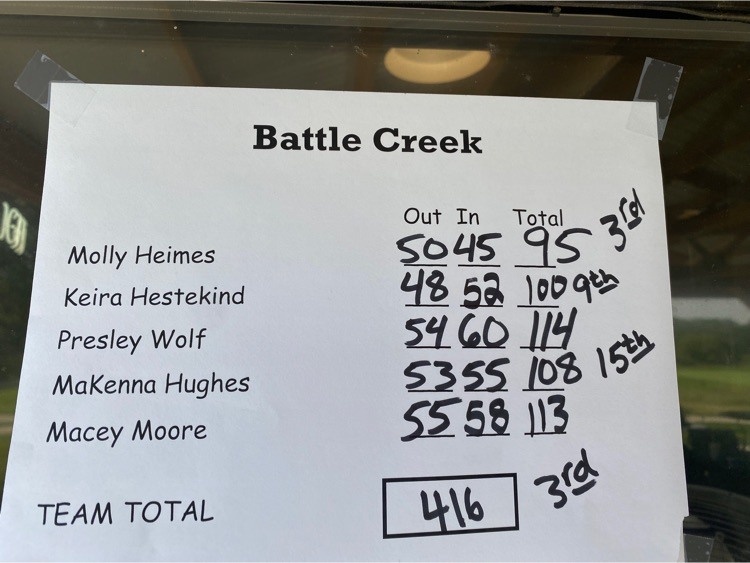 Battle Creek
Out In Total
Molly Heimes 50 45 95 3rd
Keira Hestekind 48 52 100 9th
Presley Wolf 54 60 114
MaKenna Hughes 53 55 108 15th
Macey Moore 55 58 113
TEAM TOTAL 416 3rd